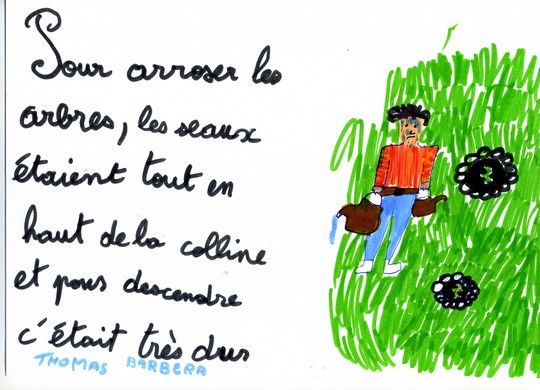 Pour arroser les
arbres, les seaux
étaient tout en
haut de la colline
et pour descendre
c'était très dur
THOMAS BARBERA